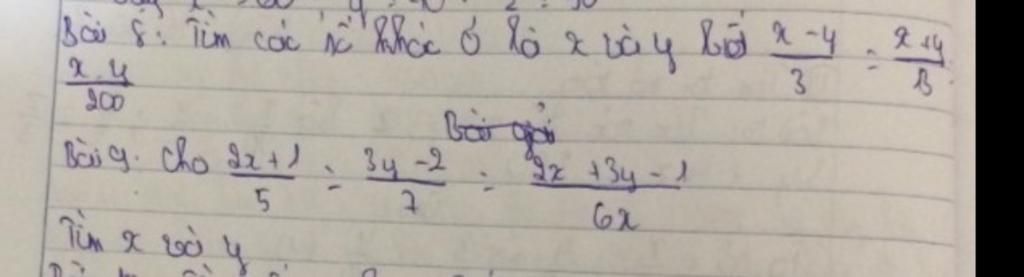 Bài 8: Tìm các số khác 0 là x và y biết \frac{x-y}{3} = \frac{x+y}{13} =
\frac{x.y}{200}
Bài giải
Bài 9. Cho \frac{2x+1}{5} = \frac{3y-2}{7} = \frac{2x+3y-1}{6x}
Tìm x và y